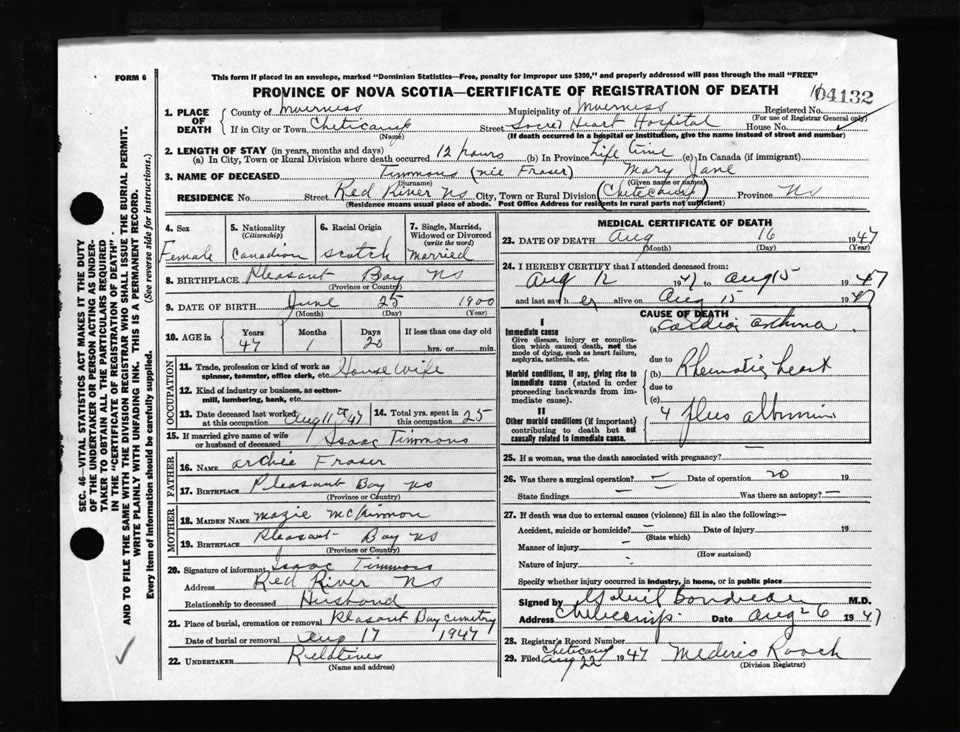 FORM 6
This form if placed in an envelope, marked "Dominion Statistics—Free, penalty for improper use $300," and properly addressed will pass through the mail "FREE"
PROVINCE OF NOVA SCOTIA—CERTIFICATE OF REGISTRATION OF DEATH
04132
1. PLACE OF DEATH
County of Inverness Municipality of Inverness Registered No.
(For use of Registrar General only)
If in City or Town Cheticamp Street Sacre Heart Hospital House No.
(Name) (If death occurred in a hospital or institution, give the name instead of street and number)
2. LENGTH OF STAY (in years, months and days)
(a) In City, Town or Rural Division where death occurred 12 hours (b) In Province Life time (c) In Canada (if immigrant)
3. NAME OF DECEASED Timmons (née Fraser) Mary Jane
(Surname) (Given name or names)
RESIDENCE No. Street Red River NS City, Town or Rural Division (Cheticamp) Province NS
(Residence means usual place of abode. Post Office Address for residents in rural parts not sufficient)
4. Sex
Female
5. Nationality
(Citizenship)
Canadian
6. Racial Origin
Scotch
7. Single, Married, Widowed or Divorced
(write the word)
Married
8. BIRTHPLACE Pleasant Bay NS
(Province or Country)
9. DATE OF BIRTH June 25 1900
(Month) (Day) (Year)
10. AGE in Years Months Days If less than one day old
47 1 hrs. or min.
OCCUPATION
11. Trade, profession or kind of work as spinner, teamster, office clerk, etc. House Wife
12. Kind of industry or business, as cotton-mill, lumbering, bank, etc.
13. Date deceased last worked at this occupation Aug 11th 47
14. Total yrs. spent in this occupation 25
15. If married give name of wife or husband of deceased Isaac Timmons
FATHER
16. NAME Archie Fraser
17. BIRTHPLACE Pleasant Bay NS
(Province or Country)
MOTHER
18. MAIDEN NAME Mazie McKinnon
19. BIRTHPLACE Pleasant Bay NS
(Province or Country)
20. Signature of informant Isaac Timmons
Address Red River NS
Relationship to deceased Husband
21. Place of burial, cremation or removal Pleasant Bay Cemetry
Date of burial or removal Aug 17 1947
22. UNDERTAKER Relatives
(Name and address)
MEDICAL CERTIFICATE OF DEATH
23. DATE OF DEATH Aug 16 1947
(Month) (Day) (Year)
24. I HEREBY CERTIFY that I attended deceased from:
Aug 12 1947 to Aug 15 1947
and last saw her alive on Aug 15 1947
CAUSE OF DEATH
I
Immediate cause
Give disease, injury or complication which caused death, not the mode of dying, such as heart failure, asphyxia, asthenia, etc.
(a) Cardiac asthma
Morbid conditions, if any, giving rise to immediate cause (stated in order proceeding backwards from immediate cause).
due to (b) Rheumatic heart
due to (c)
II
Other morbid conditions (if important) contributing to death but not causally related to immediate cause.
4 plus albumin
25. If a woman, was the death associated with pregnancy?
26. Was there a surgical operation? Date of operation 20 19
State findings Was there an autopsy?
27. If death was due to external causes (violence) fill in also the following:—
Accident, suicide or homicide? Date of injury 19
(State which)
Manner of injury
(How sustained)
Nature of injury
Specify whether injury occurred in industry, in home, or in public place
Signed by Gabriel Boudreau M.D.
Address Cheticamp Date Aug 26 1947
28. Registrar's Record Number
29. Filed Cheticamp Aug 22 1947 Mederic Roach
(Division Registrar)
SEC. 46—VITAL STATISTICS ACT MAKES IT THE DUTY
OF THE UNDERTAKER OR PERSON ACTING AS UNDER-
TAKER TO OBTAIN ALL THE PARTICULARS REQUIRED
IN THE "CERTIFICATE OF REGISTRATION OF DEATH"
AND TO FILE THE SAME WITH THE DIVISION REGISTRAR WHO SHALL ISSUE THE BURIAL PERMIT.
WRITE PLAINLY WITH UNFADING INK. THIS IS A PERMANENT RECORD.
Every item of information should be carefully supplied. (See reverse side for instructions.)